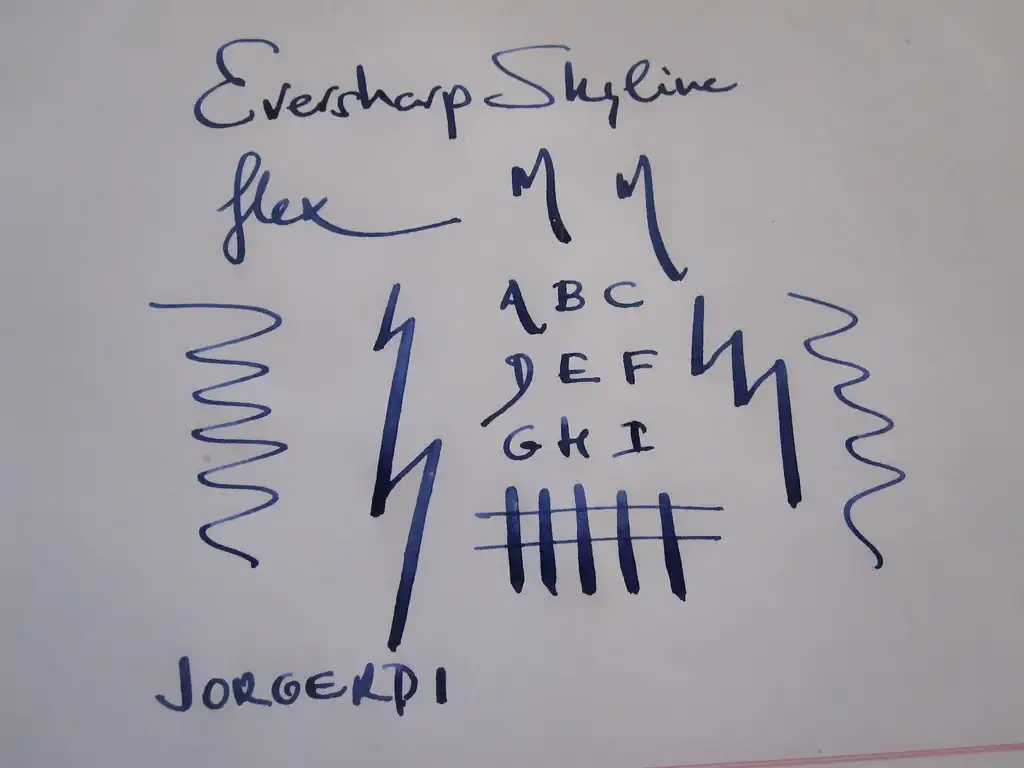 Eversharp Skyline
flex M M
A B C
D E F
G H I
JORGERDI